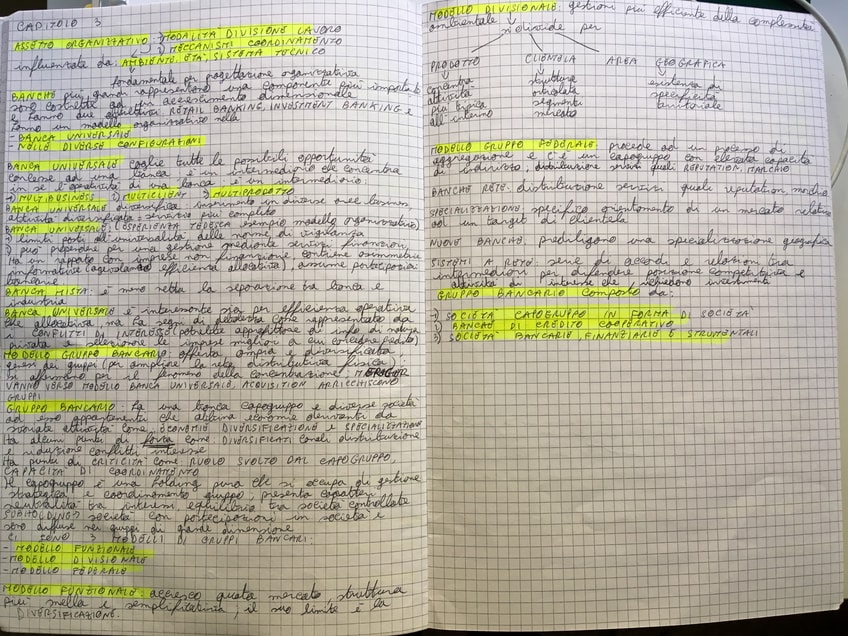 CAPITOLO 3
ASSETTO ORGANIZZATIVO 1) MODALITÀ DIVISIONE LAVORO
2) MECCANISMI COORDINAMENTO
influenzate da: AMBIENTE, ETÀ, SISTEMA TECNICO
fondamentale per progettazione organizzativa
BANCHE più grandi rappresentano una componente più importante
sono costrette ad un accrescimento dimensionale
e hanno due obiettivi RETAIL BANKING, INVESTMENT BANKING e
hanno un modello organizzativo nella
- BANCA UNIVERSALE
- NELLE DIVERSE CONFIGURAZIONI
BANCA UNIVERSALE coglie tutte le possibili opportunità
concesse ad una banca è un intermediario che concentra
in se l'operatività di una banca è un intermediario.
1) MULTIBUSINESS 2) MULTICLIENT 3) MULTIPRODOTTO
BANCA UNIVERSALE diversifica investimento in diverse aree business
attività diversificata e servizio più completo
BANCA UNIVERSALE (ESPERIENZA TEDESCA esempio modello organizzativo)
limiti posti ad universalità delle norme di vigilanza
può prevedere una gestione mediante servizi finanziari,
Ha un rapporto con imprese non finanziarie, contiene asimmetrie
informative (agevolando efficienza allocativa), assume partecipazioni
bancarie
BANCA MISTA: è meno netta la separazione tra banca e
industria
BANCA UNIVERSALE è interessante sia per efficienza operativa
che allocativa, ma la segni di debolezza come rappresentato da
CONFLITTI DI INTERESSE (potrebbe approfittare di info di natura
privata e selezionare le imprese migliori a cui concedere credito)
MODELLO GRUPPO BANCARIO: offerta ampia e diversificata
(per ampliare la rete distributiva fisica)
si affermano per il fenomeno della CONCENTRAZIONE e MERGER
VANNO VERSO MODELLO BANCA UNIVERSALE, ACQUISITION ARRICCHISCONO
GRUPPI
GRUPPO BANCARIO: ha una banca capogruppo e diverse società
ad essa appartenenti che attua economie derivanti da
svariate attività come, ECONOMIE DIVERSIFICAZIONE e SPECIALIZZAZIONE
Ha alcuni punti di forza come: DIVERSIFICATI canali distribuzione
e riduzione conflitti interesse
Ha punti di CRITICITÀ COME: RUOLO SVOLTO DAL CAPOGRUPPO,
CAPACITÀ DI COORDINAMENTO
Il capogruppo è una Holding pura che si occupa di gestione
strategica e coordinamento gruppo, presenta caratteri
neutralità tra interessi, equilibrio tra società controllate
SUBHOLDING: società con partecipazioni in società e
sono diffuse nei gruppi di grande dimensione
CI SONO 3 MODELLI DI GRUPPI BANCARI:
- MODELLO FUNZIONALE
- MODELLO DIVISIONALE
- MODELLO FEDERALE
MODELLO FUNZIONALE: accresce quota mercato, struttura
più snella e semplificativa, il suo limite è la
DIVERSIFICAZIONE.
MODELLO DIVISIONALE: gestioni più efficiente della complessità
ambientale
si divide per
PRODOTTO CLIENTELA AREA GEOGRAFICA
concentra struttura esistenza di
attività articolata specificità
più tipica segmenti territoriale
all'interno mercato
MODELLO GRUPPO FEDERALE: procede ad un processo di
aggregazione e c'è un capogruppo con elevata capacità
di indirizzo, distribuzione servizi quali REPUTATION, MARCHIO
BANCHE RETE: distribuzione servizi quali reputation marchio
SPECIALIZZAZIONE specifico orientamento di un mercato relativo
ad un target di clientela
NUOVE BANCHE: prediligono una specializzazione geografica
SISTEMI A RETE: serie di accordi e relazioni tra
intermediari per difendere posizione competitiva e
attività di interesse che richiedono investimenti
GRUPPO BANCARIO composto da:
1) SOCIETÀ CAPOGRUPPO IN FORMA DI SOCIETÀ
2) BANCHE DI CREDITO COOPERATIVO
3) SOCIETÀ BANCARIE FINANZIARIE E STRUMENTALI